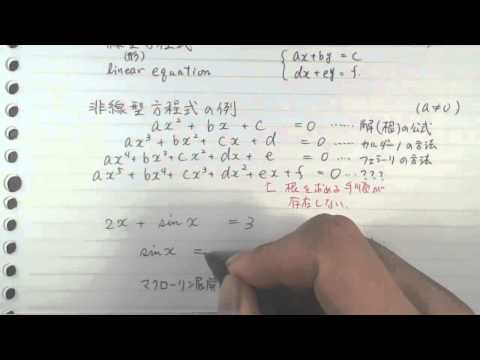 線型方程式
(形)
linear equation
{ax+by = c
dx+ey = f.
非線型方程式の例 (a≠0)
ax² + bx + c = 0 ...... 解(根)の公式
ax³ + bx² + cx + d = 0 ...... カルダーノの方法
ax⁴ + bx³ + cx² + dx + e = 0 ...... フェラーリの方法
ax⁵ + bx⁴ + cx³ + dx² + ex + f = 0 ...... ???
根を求める手順が
存在しない.
2x + sin x = 3
sin x =
マクローリン展開